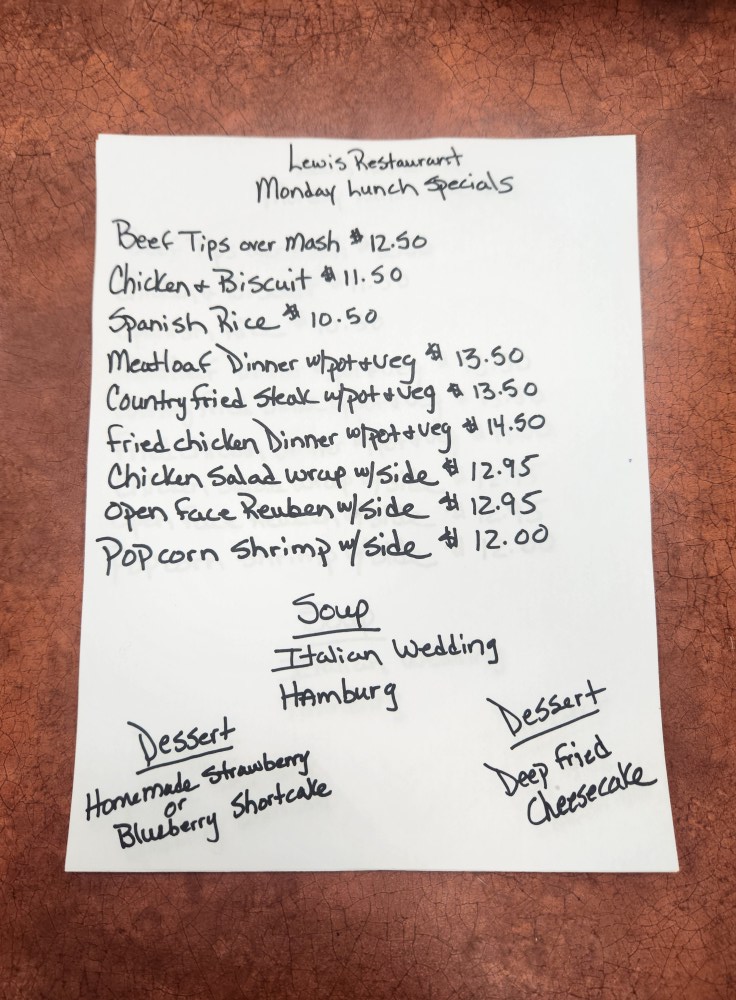 Lewis Restaurant
Monday Lunch Specials
Beef Tips over Mash $12.50
Chicken & Biscuit $11.50
Spanish Rice $10.50
Meatloaf Dinner w/pot & veg $13.50
Country fried Steak w/pot & veg $13.50
Fried chicken Dinner w/pot & veg $14.50
Chicken Salad wrap w/side $12.95
Open Face Reuben w/side $12.95
Popcorn Shrimp w/side $12.00
Soup
Italian Wedding
Hamburg
Dessert
Homemade Strawberry
or
Blueberry Shortcake
Dessert
Deep Fried
Cheesecake